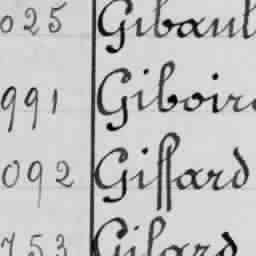 025 Gibaul
991 Giboir
092 Giffard
753 Gilard